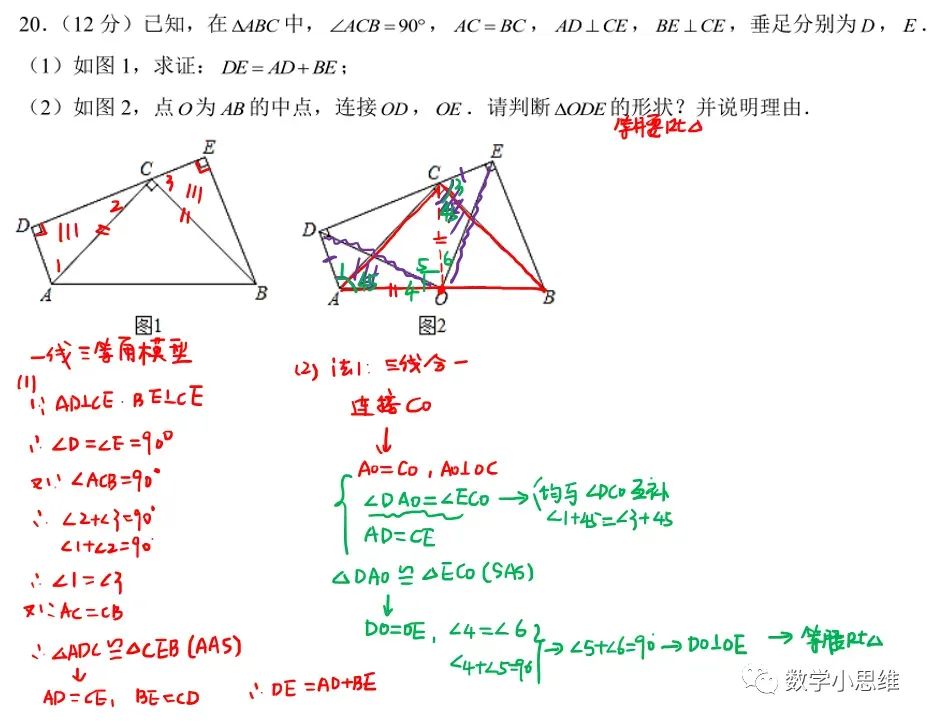 20.（12分）已知，在△ABC中，∠ACB=90°，AC=BC，AD⊥CE，BE⊥CE，垂足分别为D，E．
（1）如图1，求证：DE=AD+BE；
（2）如图2，点O为AB的中点，连接OD，OE．请判断△ODE的形状？并说明理由．
等腰Rt△
E
C
3
2
D
1
A
B
图1
E
C
3
45
D
1
45
5
6
4
A
O
B
图2
一线三等角模型
(1)
∵ AD⊥CE. BE⊥CE
∴ ∠D=∠E=90°
又∵ ∠ACB=90°
∴ ∠2+∠3=90°
∠1+∠2=90°
∴ ∠1=∠3
又∵ AC=CB
∴ △ADC≌△CEB(AAS)
↓
AD=CE, BE=CD
∴ DE=AD+BE
(2) 法1: 三线合一
连接CO
↓
AO=CO, AO⊥OC
∠DAO=∠ECO → (均与∠DCO互补
∠1+45=∠3+45
AD=CE
△DAO≌△ECO(SAS)
↓
DO=OE, ∠4=∠6
∠4+∠5=90 → ∠5+∠6=90° → DO⊥OE → 等腰Rt△
数学小思维